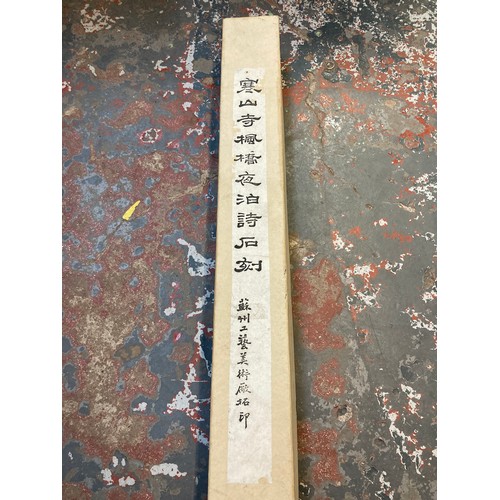 寒山寺楓橋夜泊詩石刻
蘇州工藝美術廠拓印